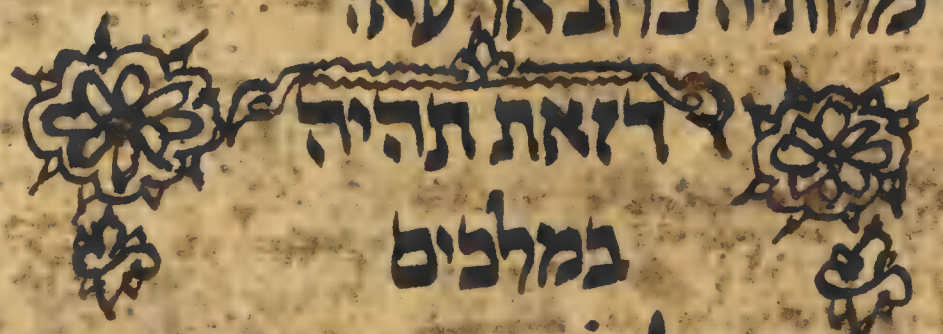 דזאת תהיה
במלכים